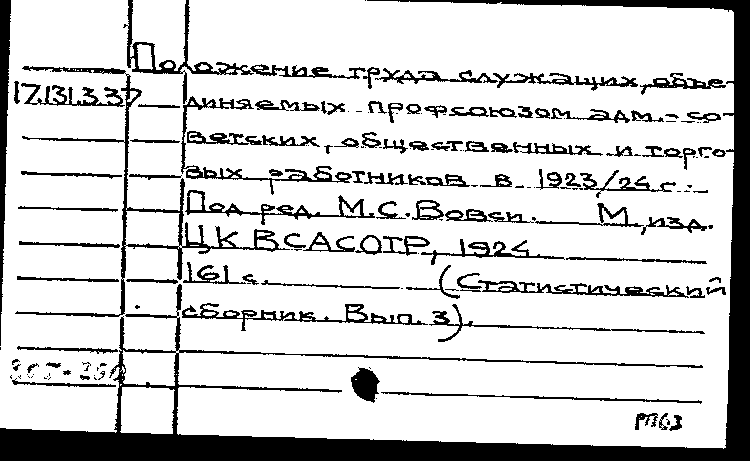 Положение труда служащих, объе-
17.131.3.37 диняемых профсоюзом адм.-со-
ветских, общественных и торго-
вых работников в 1923/24 г.
Под ред. М.С.Вовси. М., изд.
ЦК ВСАСОТР, 1924.
161 с. (Статистический
сборник. Вып. 3).
РП63